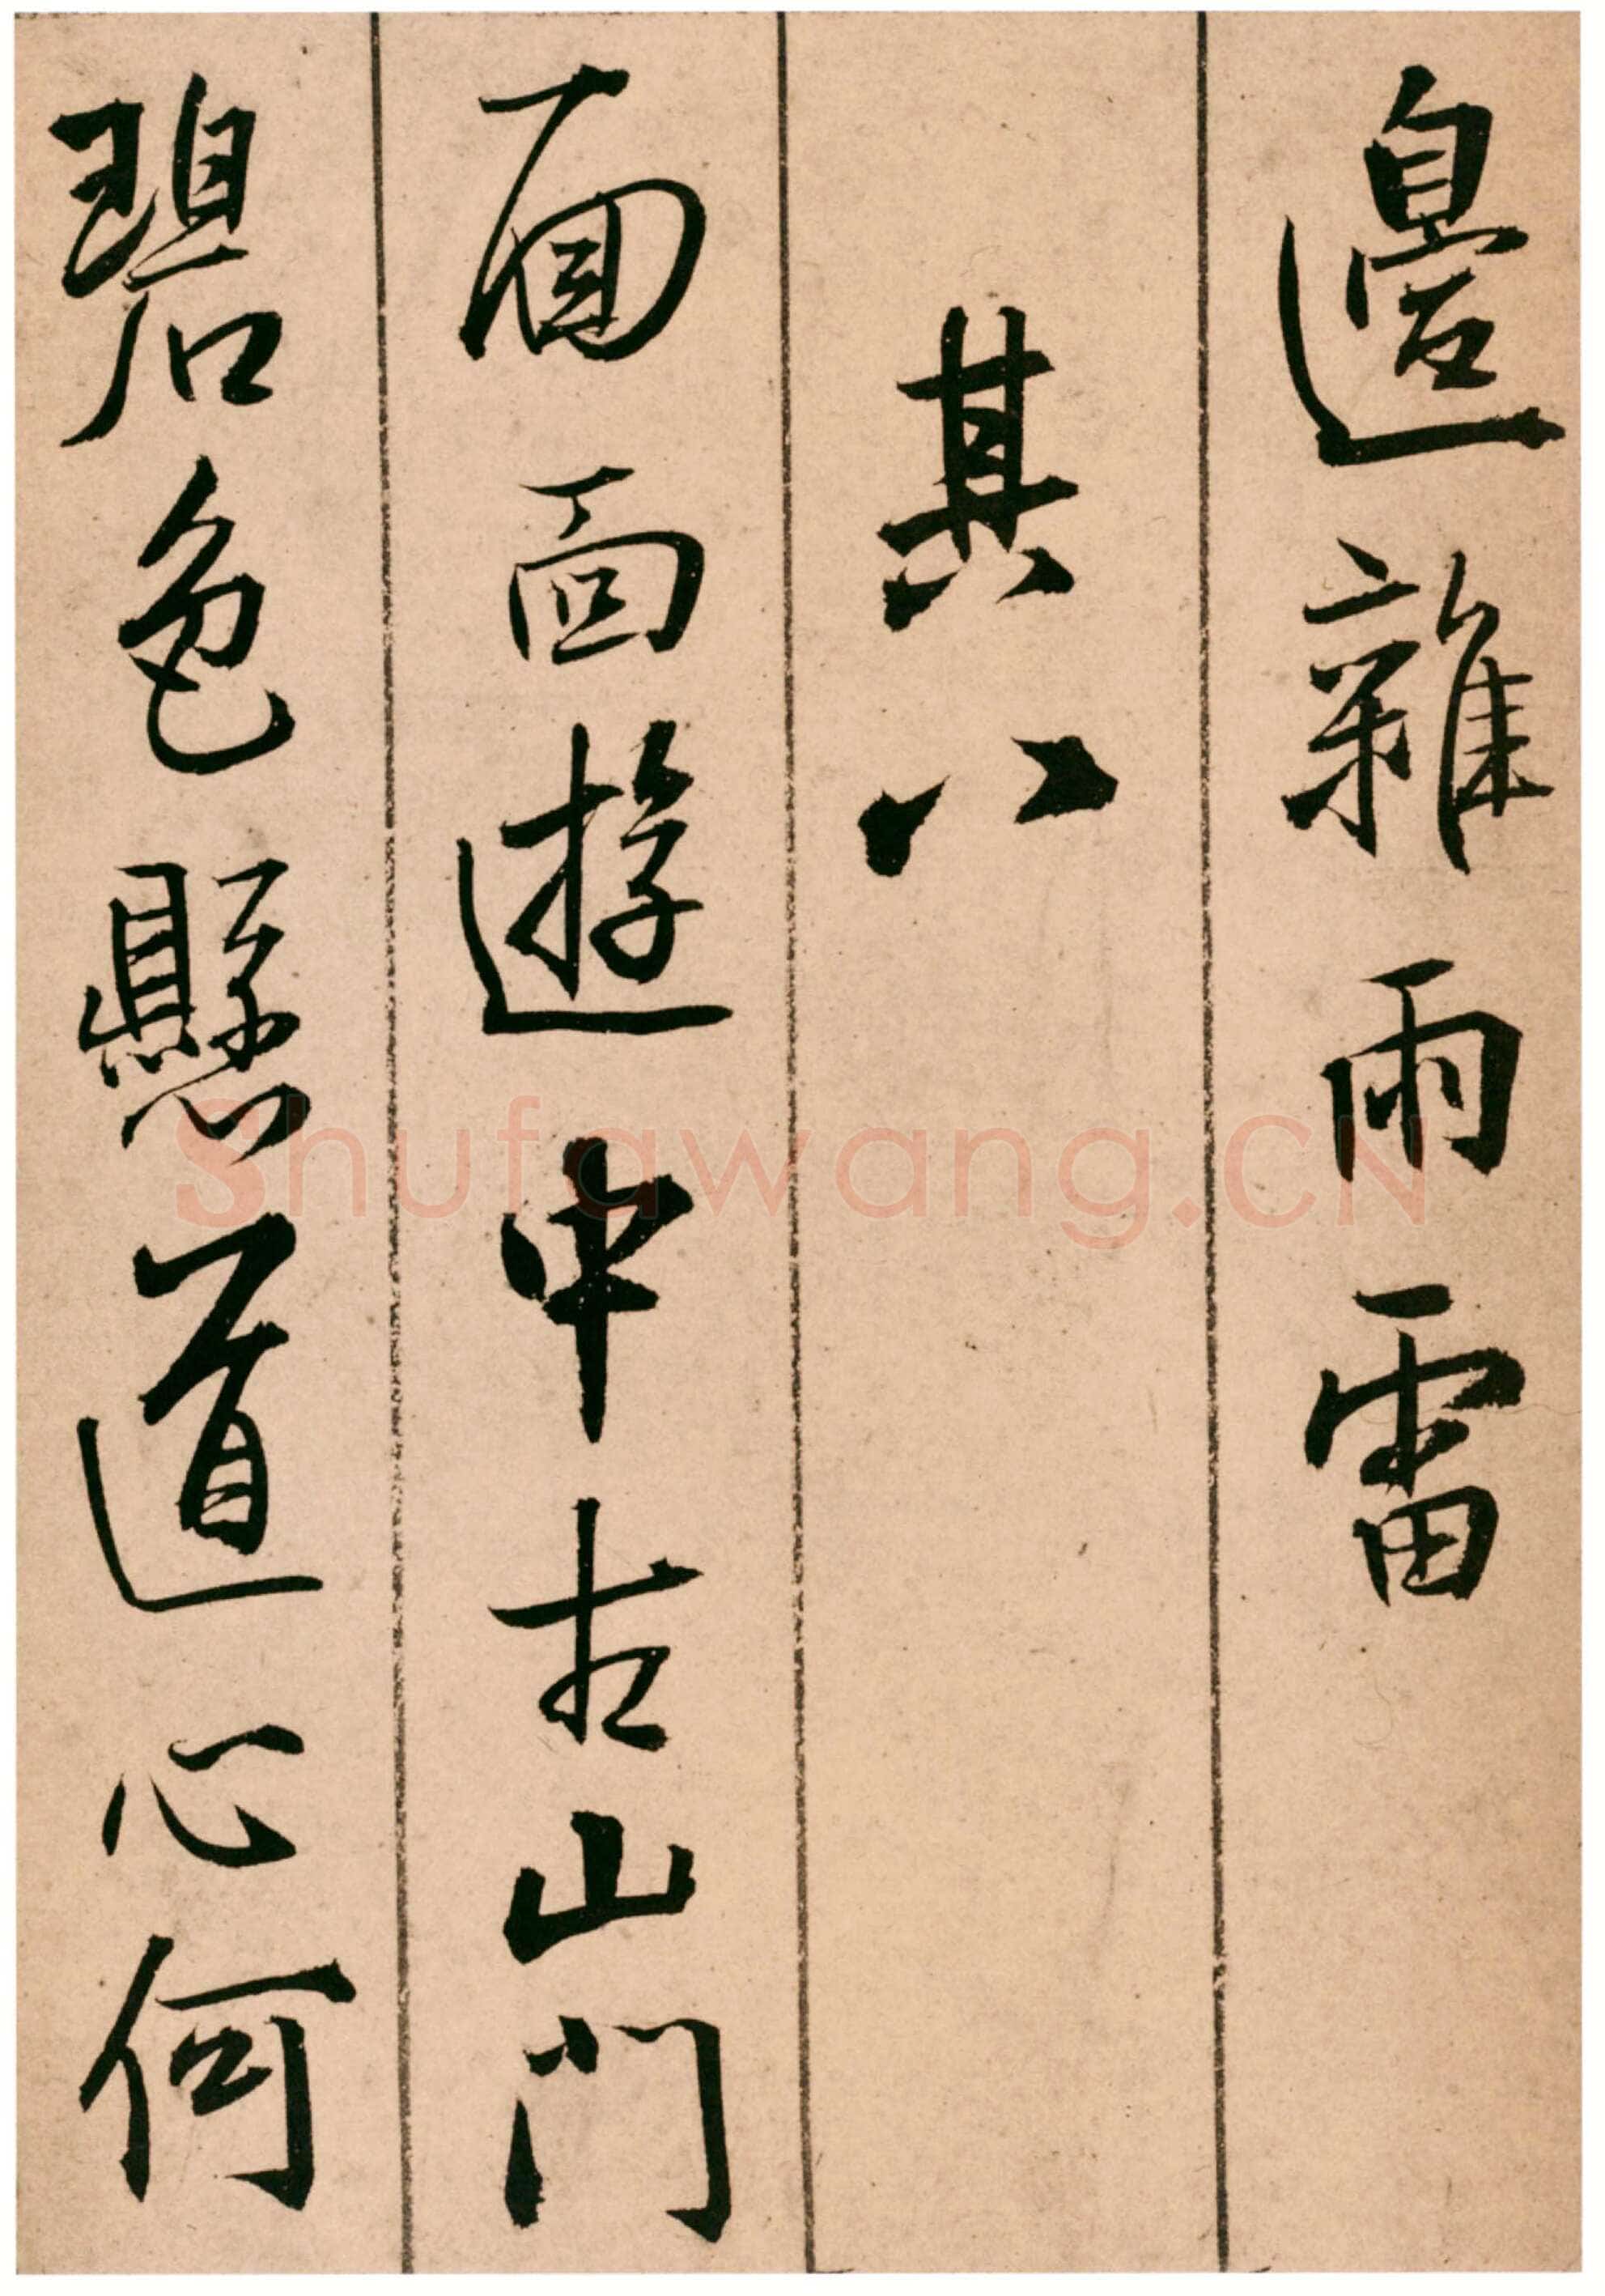 邊雜雨雷
其八
面面遊中古山門
碧色懸道心何
Shufawang.CN